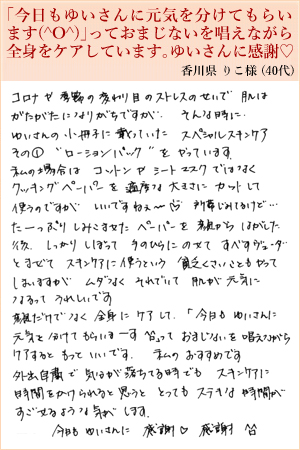 「今日もゆいさんに元気を分けてもらい
ます(^O^)」っておまじないを唱えながら
全身をケアしています。ゆいさんに感謝♡
香川県 りこ様（40代）
コロナや季節の変わり目のストレスのせいで 肌は
がたがたになりがちですが、 そんな時に
ゆいさんの小冊子に載っていた スペシャルスキンケア
その① "ローションパック" を やっています。
私の場合は コットン や シートマスク ではなく
クッキングペーパー を 適度な 大きさに カットして
使うのですが いいですねぇ〜♡
たーっぷり しみこませた ペーパーを 顔から はがした
後、 しっかり しぼって 手のひらに のせて
と まぜて スキンケアに 使うという 貧乏くさいことも やって
しまいますが ムダなく それでいて 肌が 元気に
なるって うれしいです
顔だけでなく 全身に ケアして、「今日も ゆいさんに
元気を 分けて もらいまーす」って おまじないを 唱えながら
ケアすると もっと いいです。 私の おすすめです
外出自粛 で 気分が 落ちてる時でも スキンケアに
時間を かけられると 思うと とっても ステキな 時間が
すごせるような 気が します。
今日も ゆいさんに 感謝♡ 感謝!